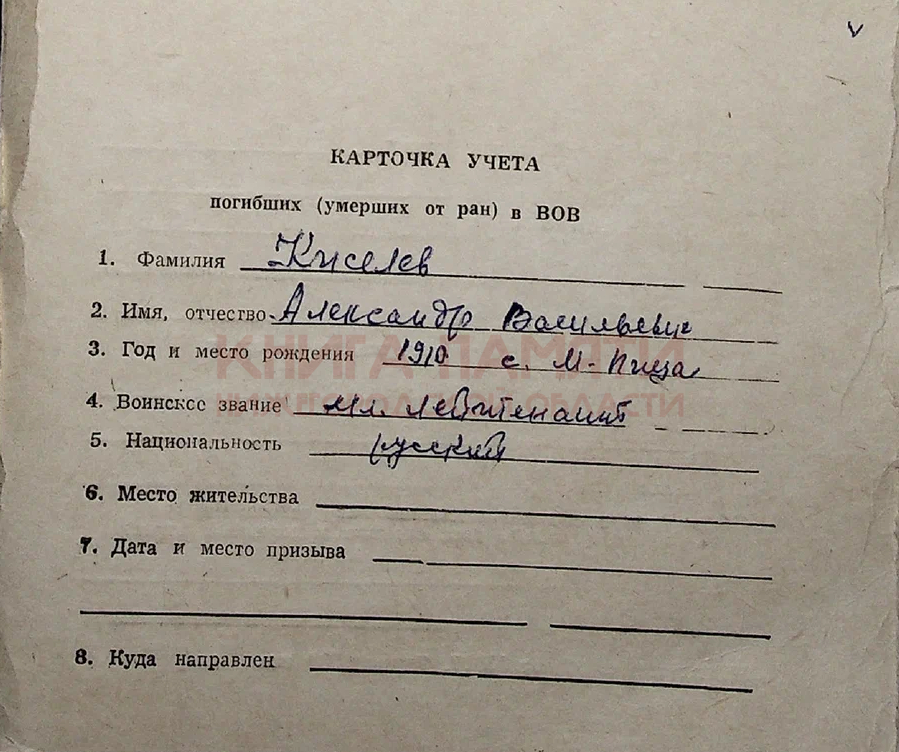 КАРТОЧКА УЧЕТА
погибших (умерших от ран) в ВОВ
1. Фамилия Киселев
2. Имя, отчество Александр Васильевич
3. Год и место рождения 1910 с. М-Пица
4. Воинское звание мл. лейтенант
5. Национальность русский
6. Место жительства
7. Дата и место призыва
8. Куда направлен
КНИГА ПАМЯТИ
НИЖЕГОРОДСКОЙ ОБЛАСТИ